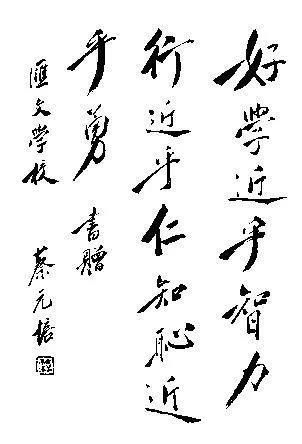 好學近乎智力
行近乎仁知恥近
乎勇 書贈
匯文學校 蔡元培